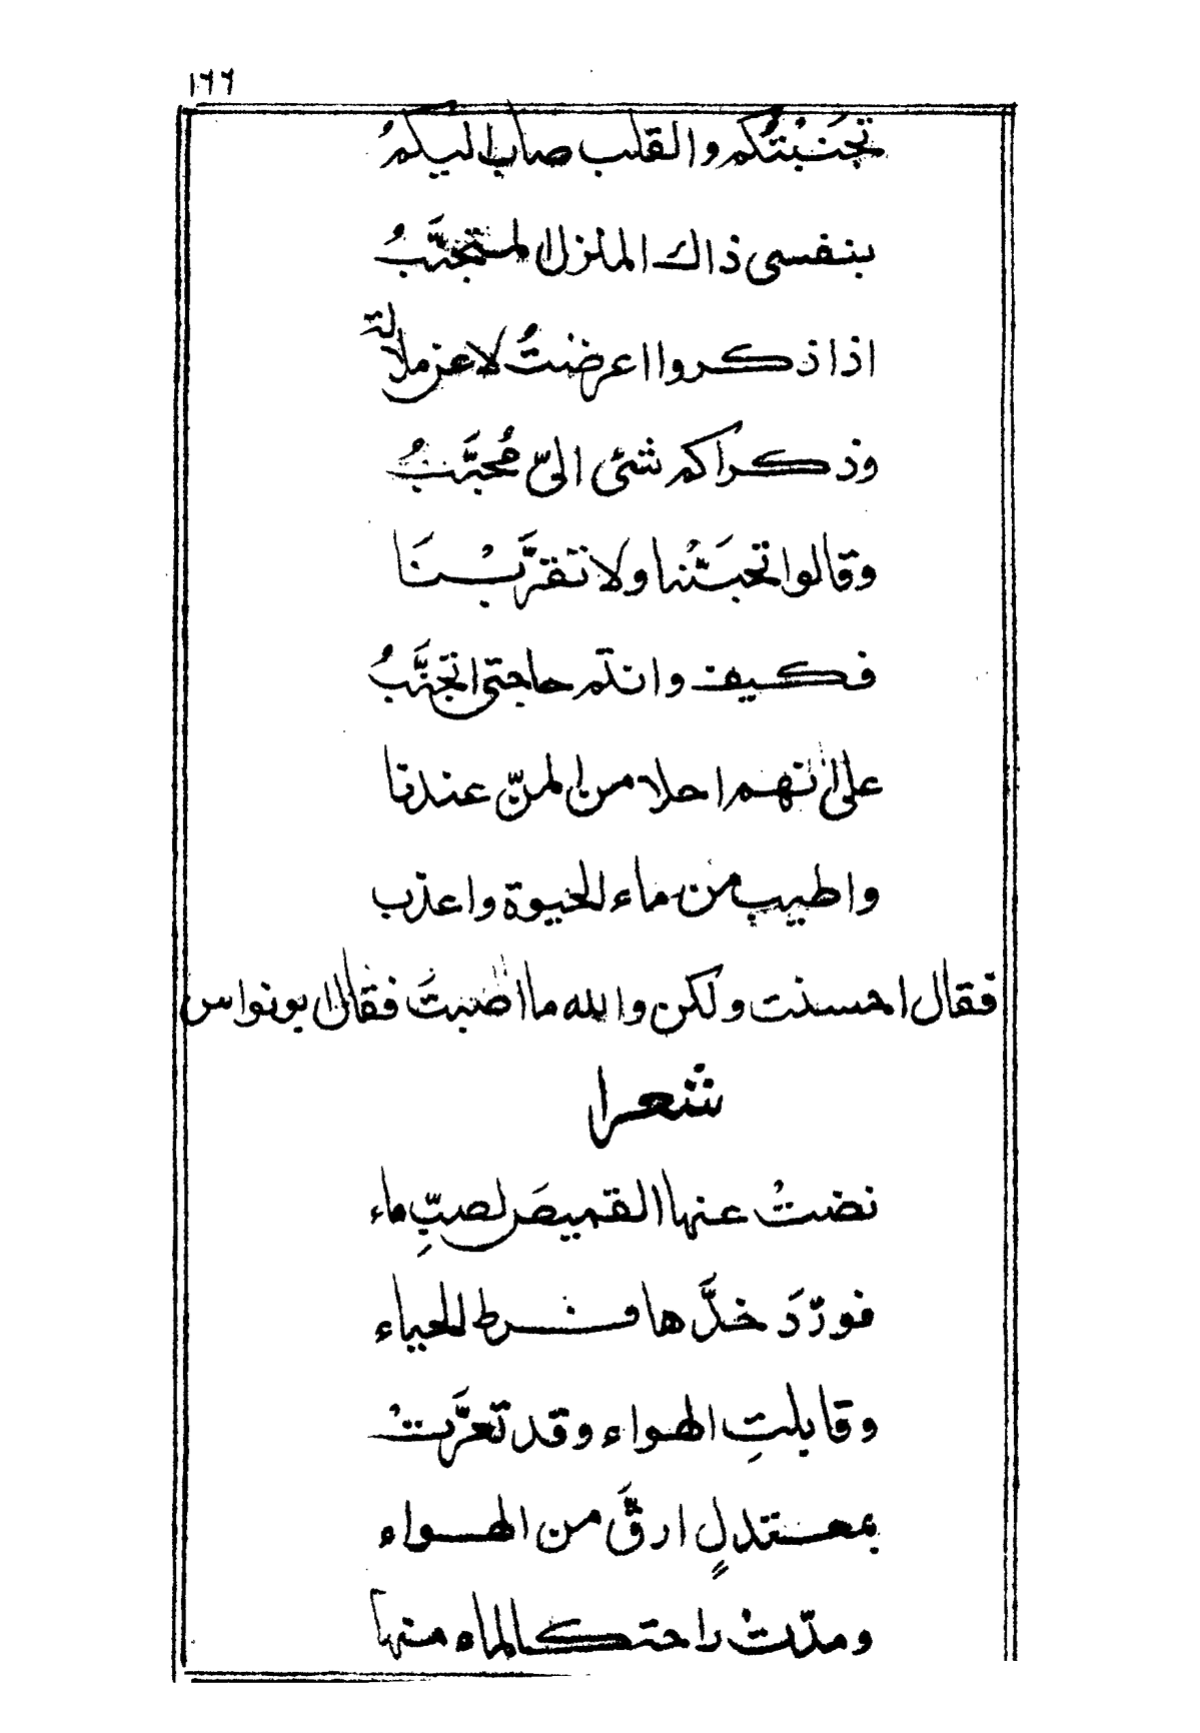 ١٦٦
تجَنَبْتُكُم والقلب صاب اليكمُ
بنفسى ذاك المنزل المستجنَّبُ
اذا ذكروا اعرضتُ لا عن ملالة
وذكراكم شئ الىّ مُحبَّبُ
وقالوا تجنَّبْنا ولا تقرَّبْنَا
فكيف وانتم حاجتى اتجنَّبُ
على انهم احلا من المنّ عندنا
واطيب من ماء الحيوة واعذب
فقال احسنت ولكن والله ما اصبتَ فقال ابونواس
شعرا
نضتْ عنها القميصَ لصبِّ ماء
فورّدَ خدَّها فرط الحياء
وقابلتِ الهواء وقد تعرَّتْ
بمعتدلٍ ارقَّ من الهواء
ومدّتْ راحتكالماء منها